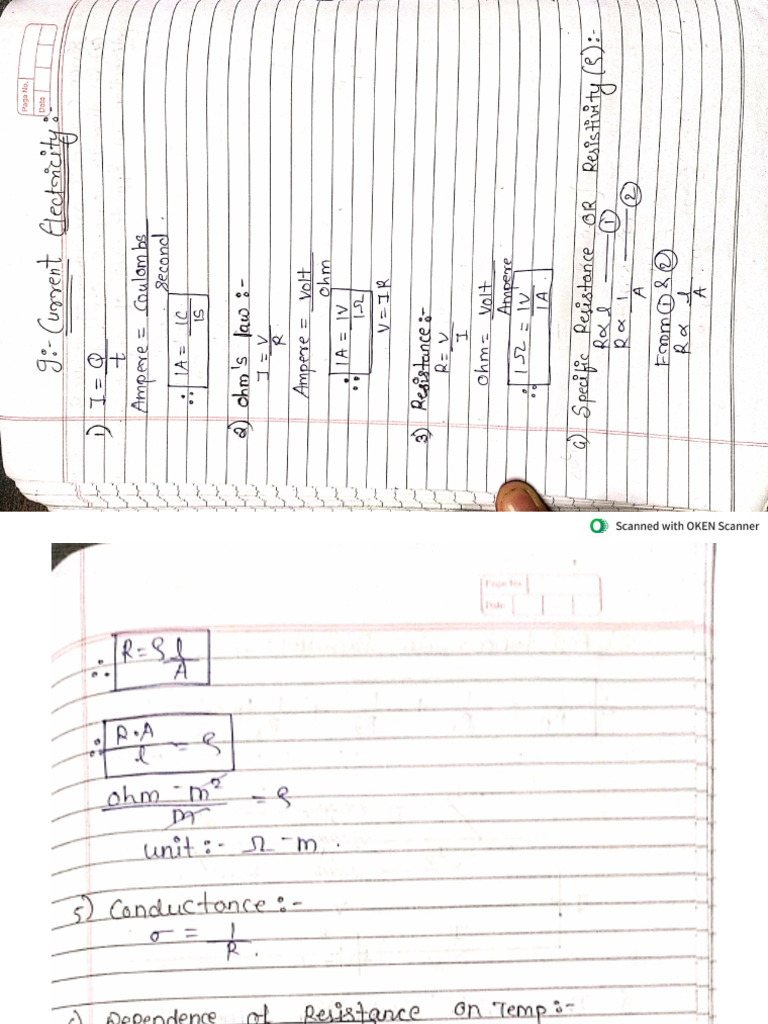 Page No.
Date
9:- Current Electricity:-
1) I = Q/t
Ampere = Coulombs/second.
∴ 1A = 1C/1S
2) Ohm's law:-
I = V/R
Ampere = Volt/Ohm
∴ 1A = 1V/1Ω
V = IR
3) Resistance:-
R = V/I
Ohm = Volt/Ampere
∴ 1Ω = 1V/1A
4) Specific Resistance OR Resistivity (ρ):-
R ∝ l — ①
R ∝ 1/A — ②
From ① & ②
R ∝ l/A
Scanned with OKEN Scanner
Page No.
Date
∴ R = ρ l/A
∴ R·A/l = ρ
ohm - m²/m = ρ
unit:- Ω-m.
5) Conductance:-
σ = 1/R.
Dependence of Resistance on Temp:-